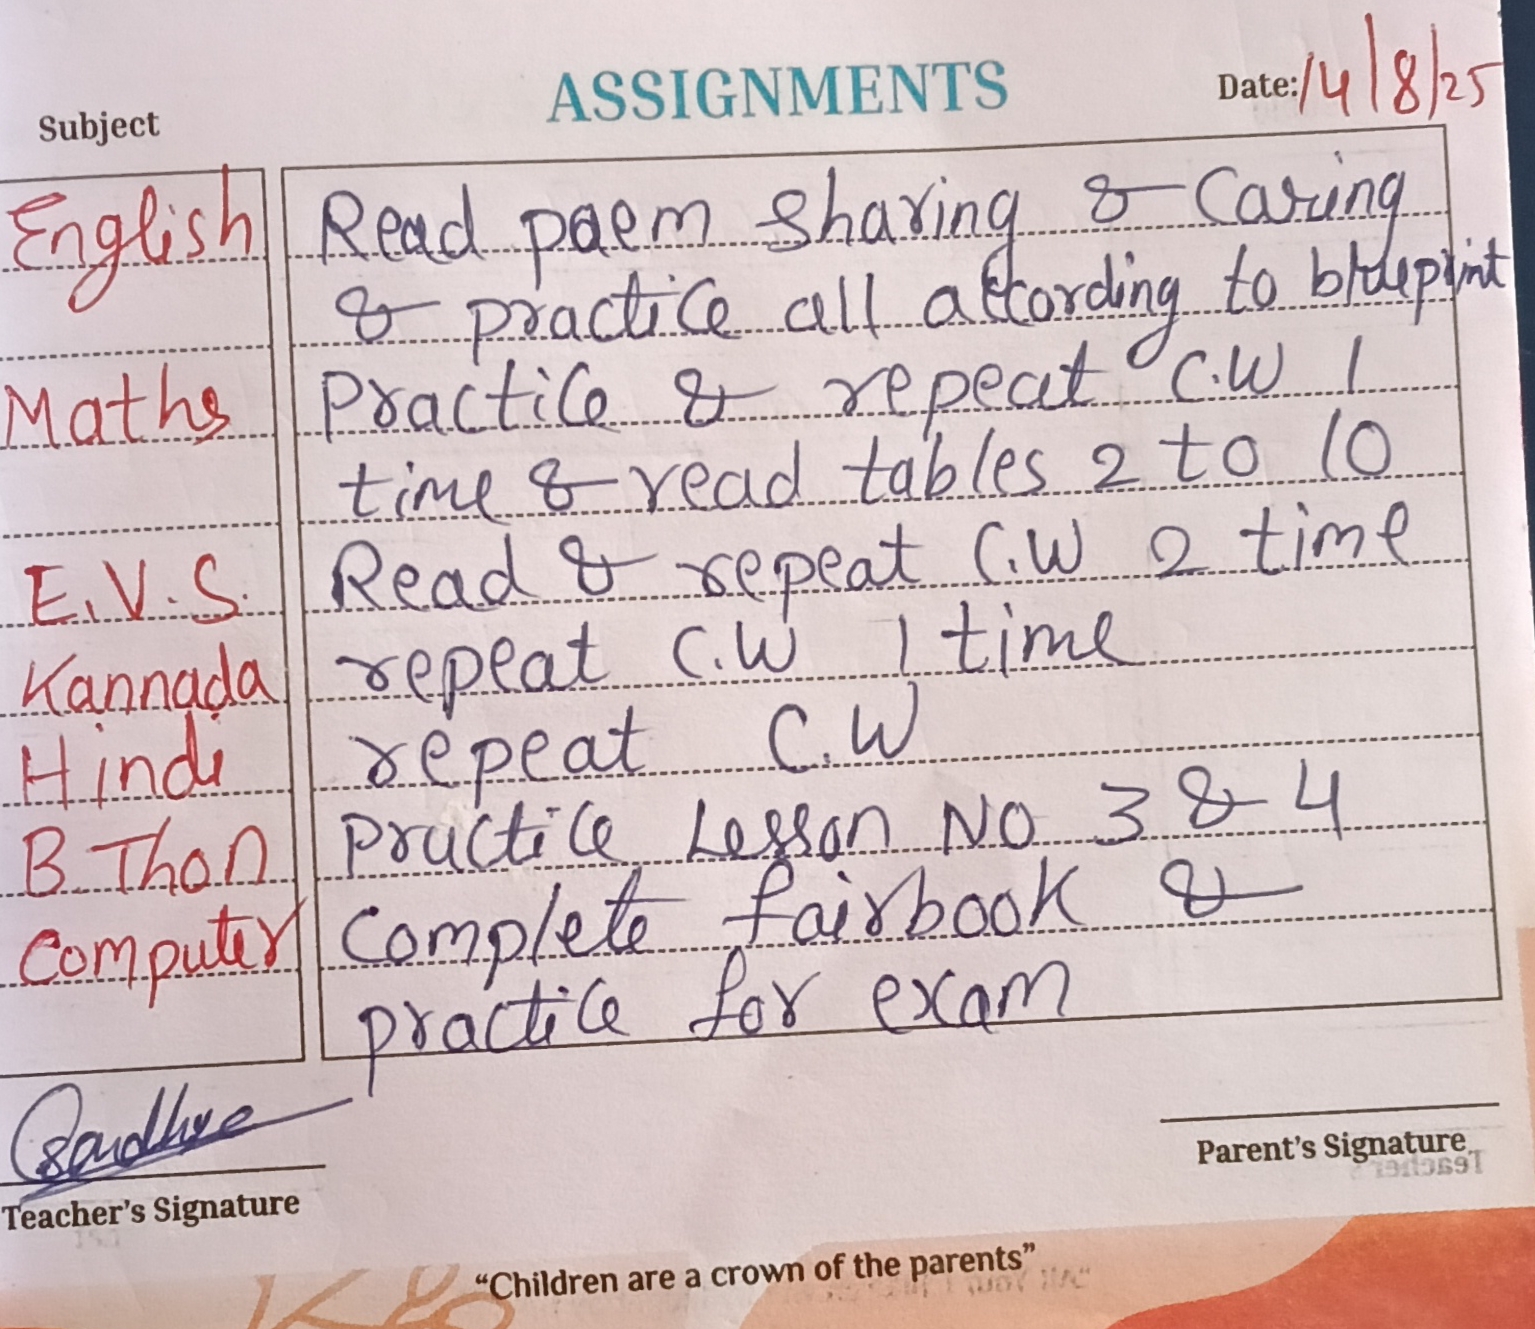 ASSIGNMENTS
Subject
Date: 14/8/25
English Read paem Sharing & Caring
& practice all according to blueprint
Maths Practice & repeat C.W 1
time & read tables 2 to 10
E.V.S. Read & repeat C.W 2 time
Kannada repeat C.W 1 time
Hindi repeat C.W
B.Thon Practice Lesson No 3 & 4
Computer Complete fairbook &
practice for exam
Teacher's Signature
Parent's Signature
"Children are a crown of the parents"